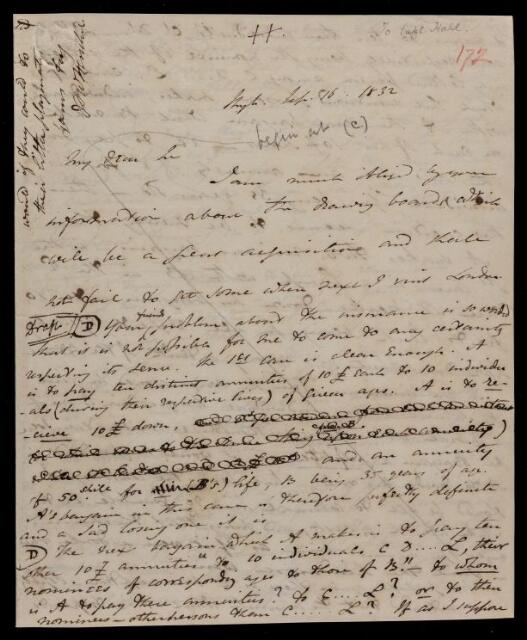 ++
To Capt Hall.
172
Sept. 16. 1832
begin at (C)
My Dear Sir
I am much obliged by your
information about the drawing boards which
will be a great acquisition and shall
not fail to get some when next I visit London
Draft (D) Your friend's problem about the insurance is so worded
that it is not possible for me to come to any certainty
respecting its sense. The 1st case is clear enough. A
is to pay ten distinct annuities of 10 £ each to 10 individu
-als (during their respective lives) of given ages. A is to re-
-ceive 10 £ down,
and an annuity
of 50 for (B's) life, B being 35 years of age.
A's bargain in this case is therefore perfectly definite
and a sad losing one it is
(D) The next bargain which A makes is to pay ten
other 10 £ annuities to 10 individuals C D .... L, their
nominees of corresponding ages to those of B" - to whom
is A to pay these annuities? to C .... L? or to their
nominees - other persons than C ..... L? If as I suppose
would if they could to
their little playmate
Yours truly
JFW Herschel